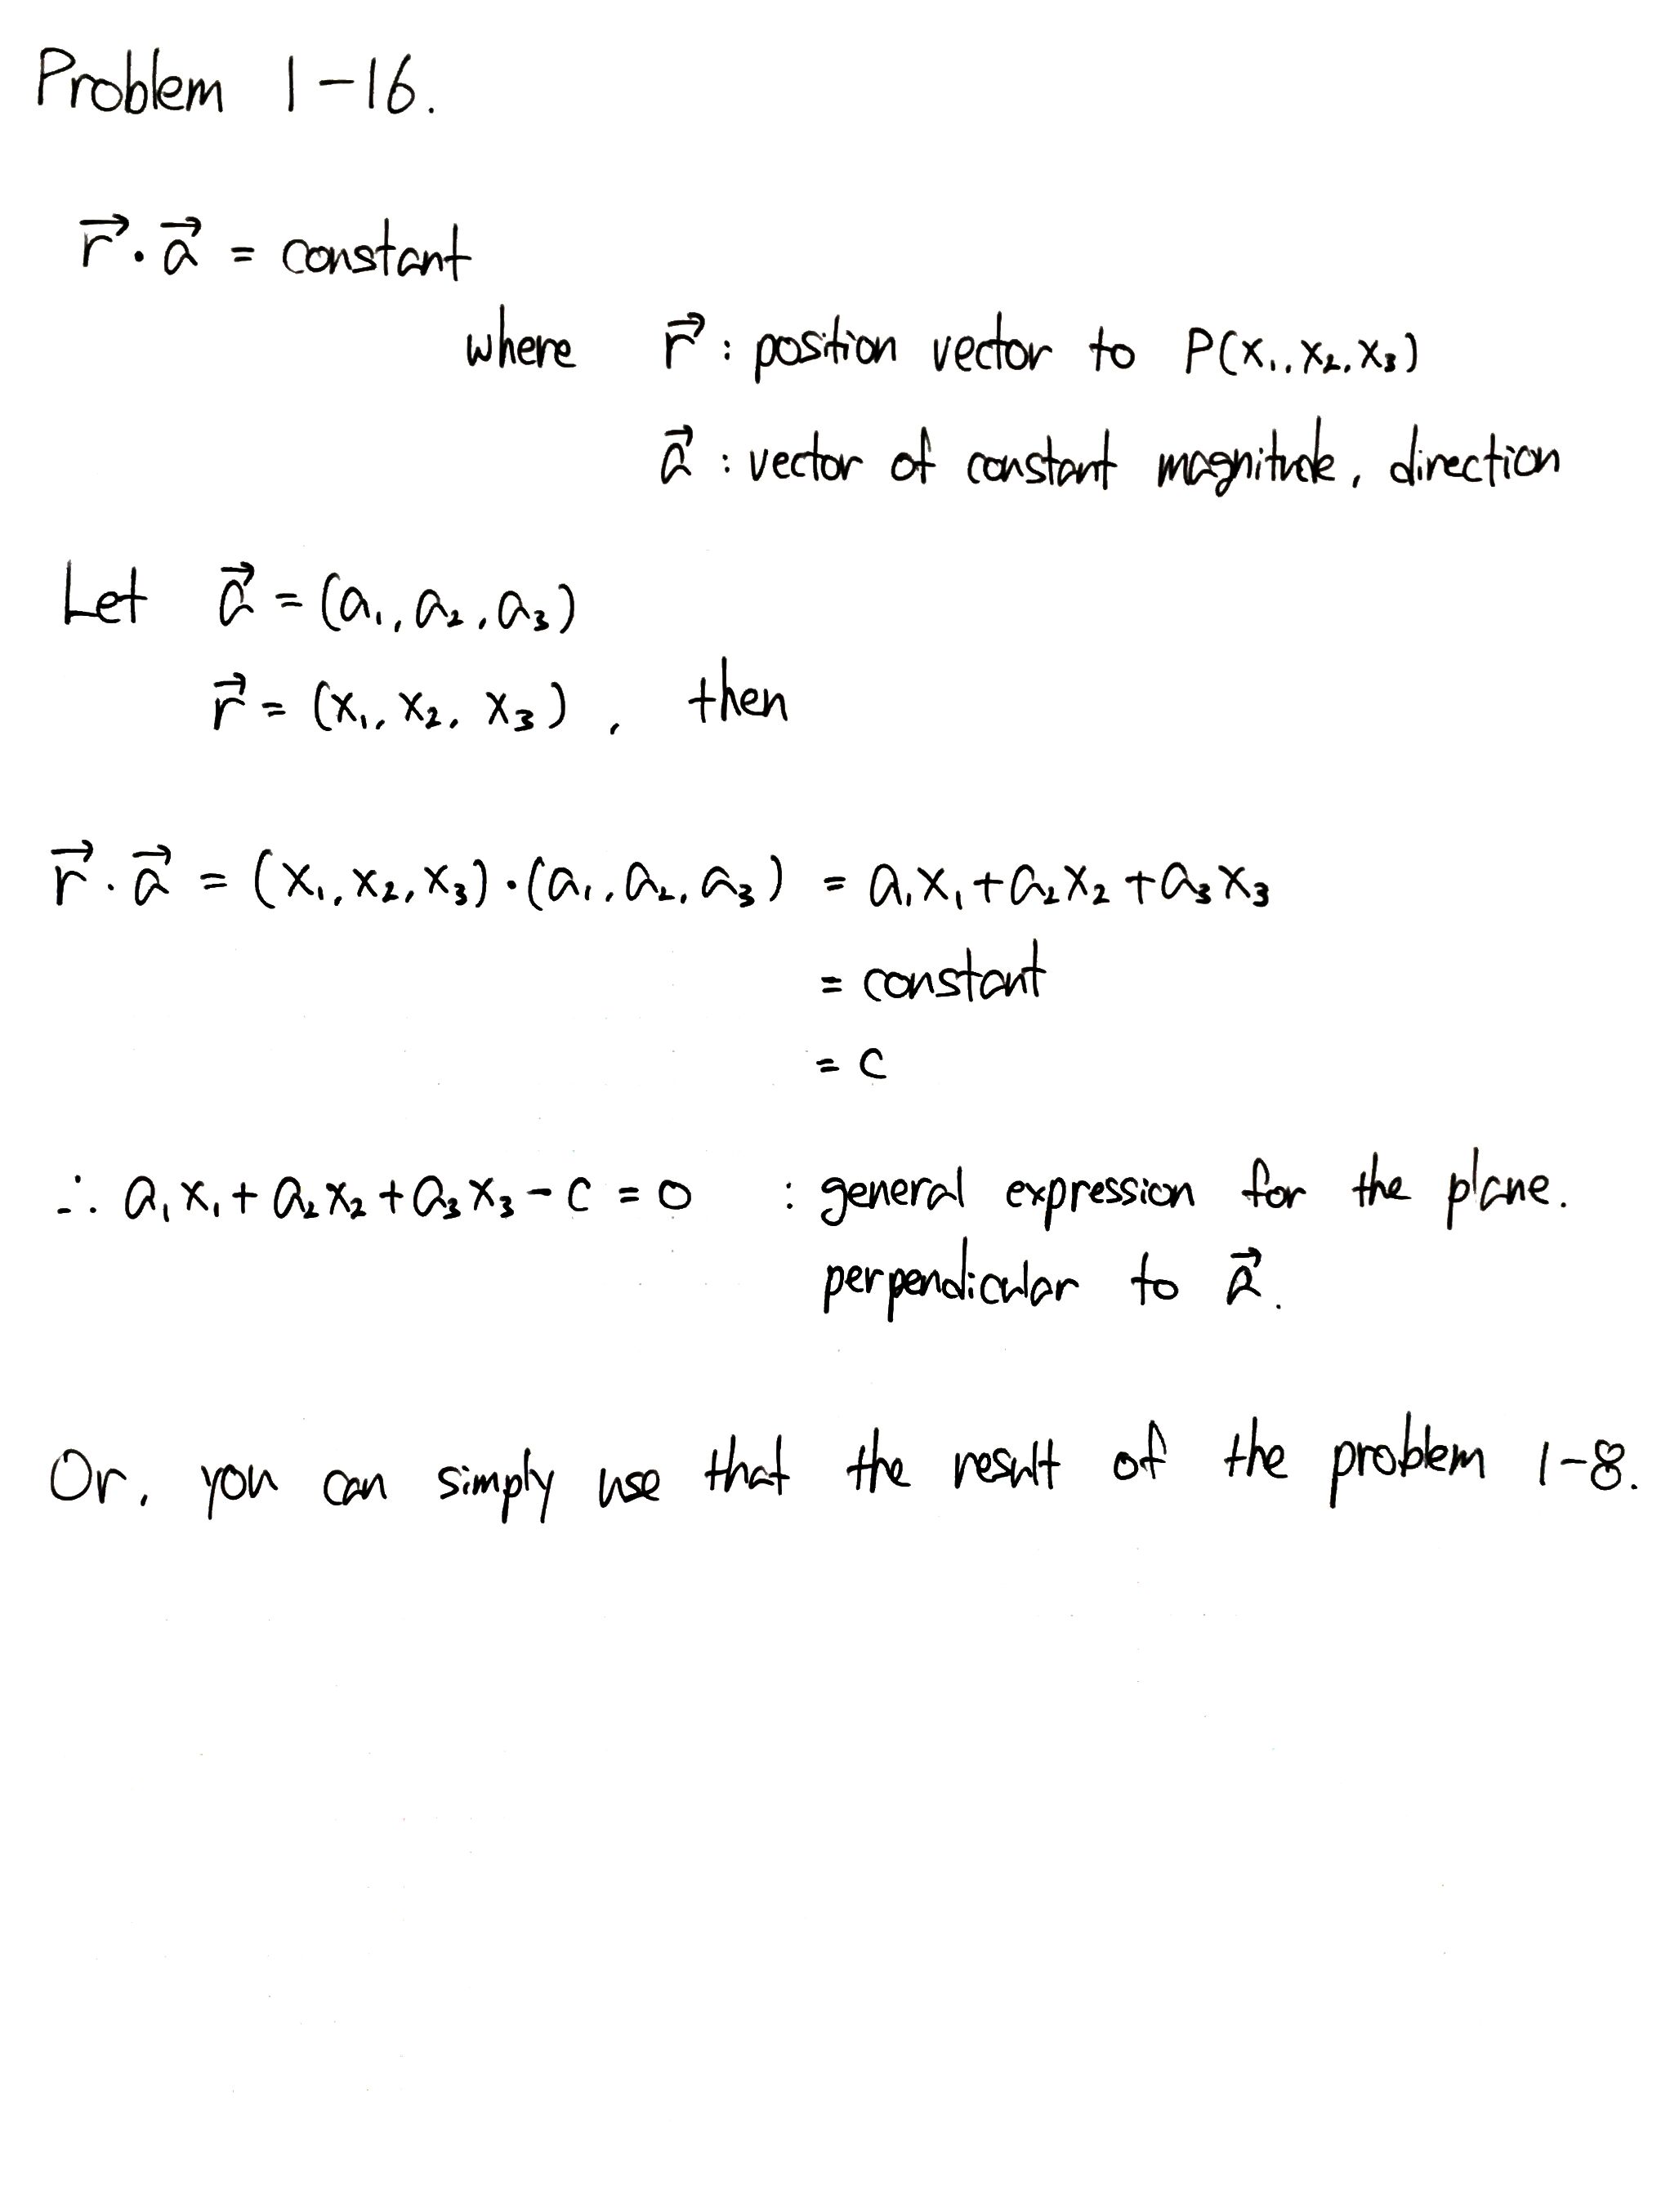 Problem 1-16.
r⃗ · a⃗ = constant
where r⃗ : position vector to P(x₁, x₂, x₃)
a⃗ : vector of constant magnitude, direction
Let a⃗ = (a₁, a₂, a₃)
r⃗ = (x₁, x₂, x₃), then
r⃗ · a⃗ = (x₁, x₂, x₃) · (a₁, a₂, a₃) = a₁x₁ + a₂x₂ + a₃x₃
= constant
= c
∴ a₁x₁ + a₂x₂ + a₃x₃ - c = 0 : general expression for the plane.
perpendicular to a⃗.
Or, you can simply use that the result of the problem 1-8.